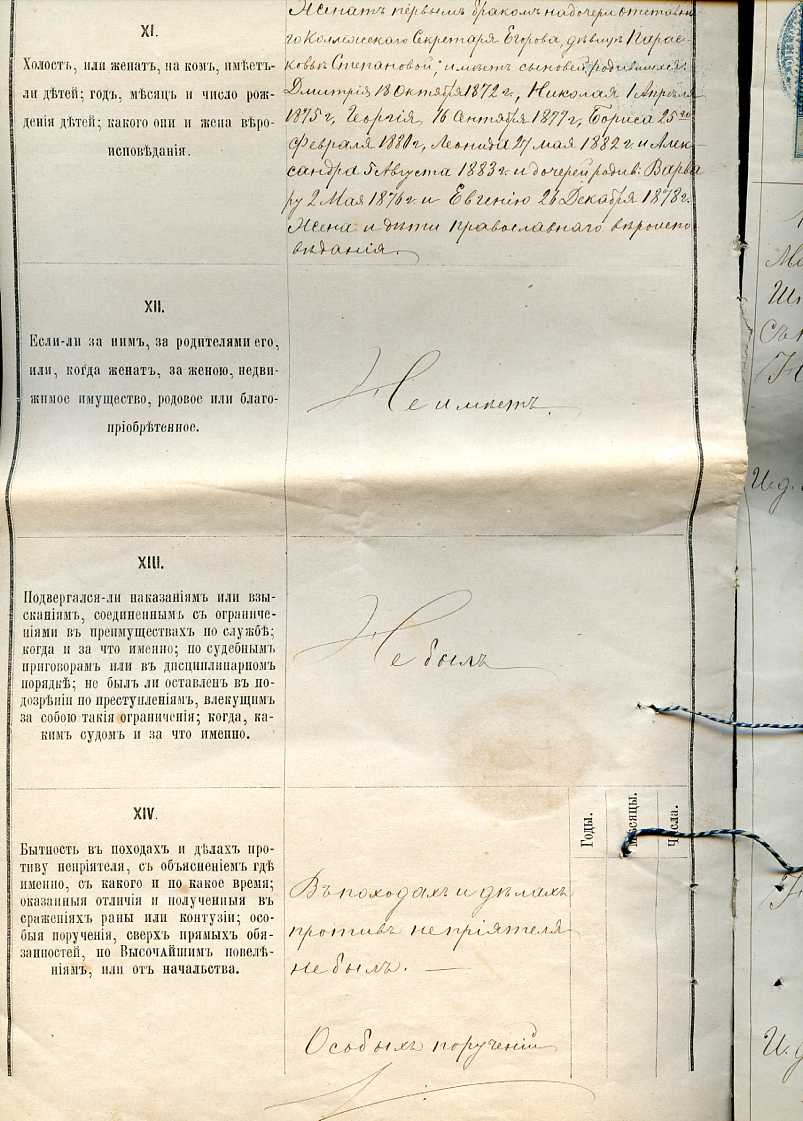 XI.
Холостъ, или женатъ, на комъ, имѣетъ-
ли дѣтей; годъ, мѣсяцъ и число рож-
денія дѣтей; какого они и жена вѣро-
исповѣданія.
Женатъ первымъ бракомъ на дочери отставна-
го Коллежскаго Секретаря Егорова, дѣвицѣ Парас-
ковьѣ Степановой; имѣетъ сыновей, родившихся:
Дмитрія 18 Октября 1872 г., Николая 1 Апрѣля
1875 г., Георгія 16 Сентября 1877 г., Бориса 25го
Февраля 1880 г., Леонида 27 мая 1882 г. и Алек-
сандра 5 Августа 1883 г. и дочерей родив: Варва
ру 2 Мая 1876 г. и Евгенію 26 Декабря 1878 г.
Жена и дѣти православнаго вѣроиспо
вѣданія.
XII.
Если-ли за нимъ, за родителями его,
или, когда женатъ, за женою, недви-
жимое имущество, родовое или благо-
пріобрѣтенное.
Не имѣетъ.
XIII.
Подвергался-ли наказаніямъ или взы-
сканіямъ, соединеннымъ съ ограниче-
ніями въ преимуществахъ по службѣ;
когда и за что именно; по судебнымъ
приговорамъ или въ дисциплинарномъ
порядкѣ; не былъ ли оставленъ въ по-
дозрѣніи по преступленіямъ, влекущимъ
за собою такія ограниченія; когда, ка-
кимъ судомъ и за что именно.
Не былъ
XIV.
Бытность въ походахъ и дѣлахъ про-
тиву непріятеля, съ объясненіемъ гдѣ
именно, съ какого и по какое время;
оказанныя отличія и полученныя въ
сраженіяхъ раны или контузіи; осо-
быя порученія, сверхъ прямыхъ обя-
занностей, по ВЫСОЧАЙШИМЪ повелѣ-
ніямъ, или отъ начальства.
Годы.
Мѣсяцы.
Числа.
Въ походахъ и дѣлахъ
противъ непріятеля
не былъ. —
Особыхъ порученій
И. д.
И. д